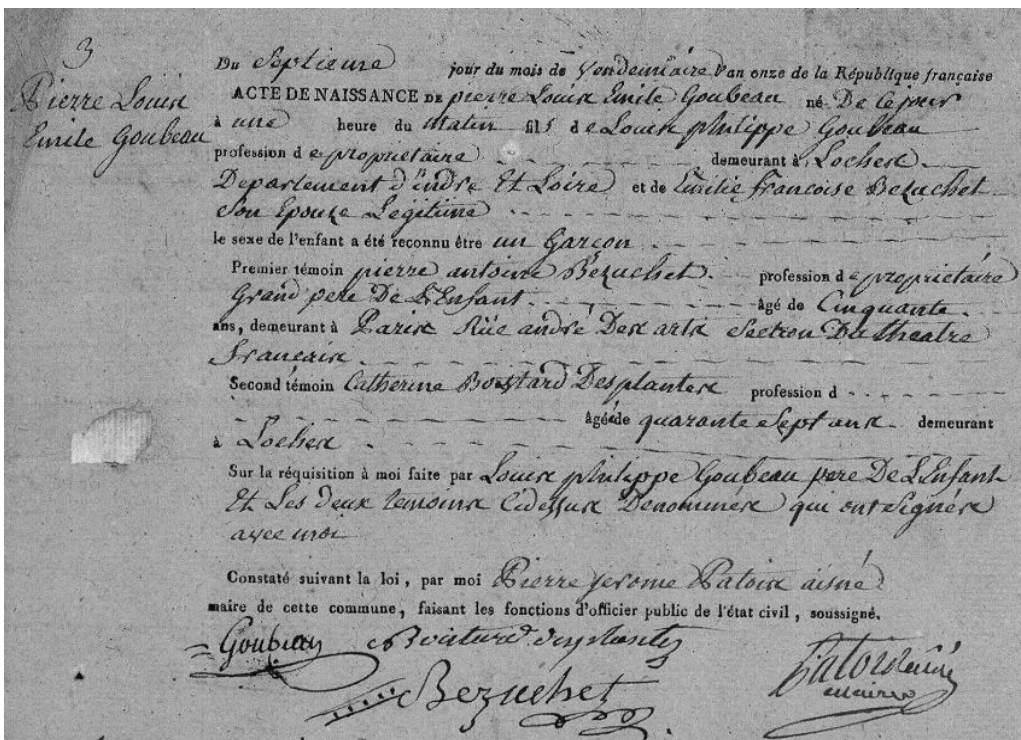 3
Pierre Louis
Emile Goubeau
Du Septieme jour du mois de Vendemiáire l'an onze de la République française
ACTE DE NAISSANCE DE pierre Louis Emile Goubeau né De ce jour
à une heure du Matin fils de Louis philippe Goubeau
profession de propriétaire demeurant à Loches
Departement d'indre Et Loire et de Emilie francoise Bezuchet
Son Epouze Legitime
le sexe de l'enfant a été reconnu être un Garçon
Premier témoin pierre antoine Bézuchet profession de propriétáire
Grand pere De L'Enfant âgé de Cinquante
ans, demeurant à Paris Rüe andré Des arts Section Du theatre
francais
Second témoin Catherine Boistard Desplantes profession d
âgée de quarante Sept ans demeurant
à Loches
Sur la réquisition à moi faite par Louis philippe Goubeau pere De L'Enfant
Et Les deux temoins Cidessus Denommés qui ont Signés
avec moi
Constaté suivant la loi, par moi Pierre jerome Patois aisné
maire de cette commune, faisant les fonctions d'officier public de l'état civil, soussigné.
Goubeau Boistard desplantes
Bezuchet
Patois aisné
maire